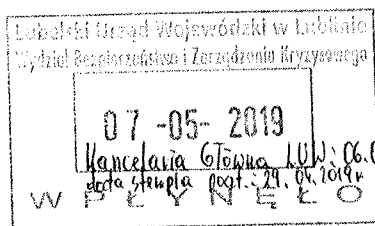 Lubelski Urząd Wojewódzki w Lublinie
Wydział Bezpieczeństwa i Zarządzania Kryzysowego
07 -05- 2019
Kancelaria Główna LUW: 06.0
data stempla poczt.: 29. 04. 2019 r.
WPŁYNĘŁO